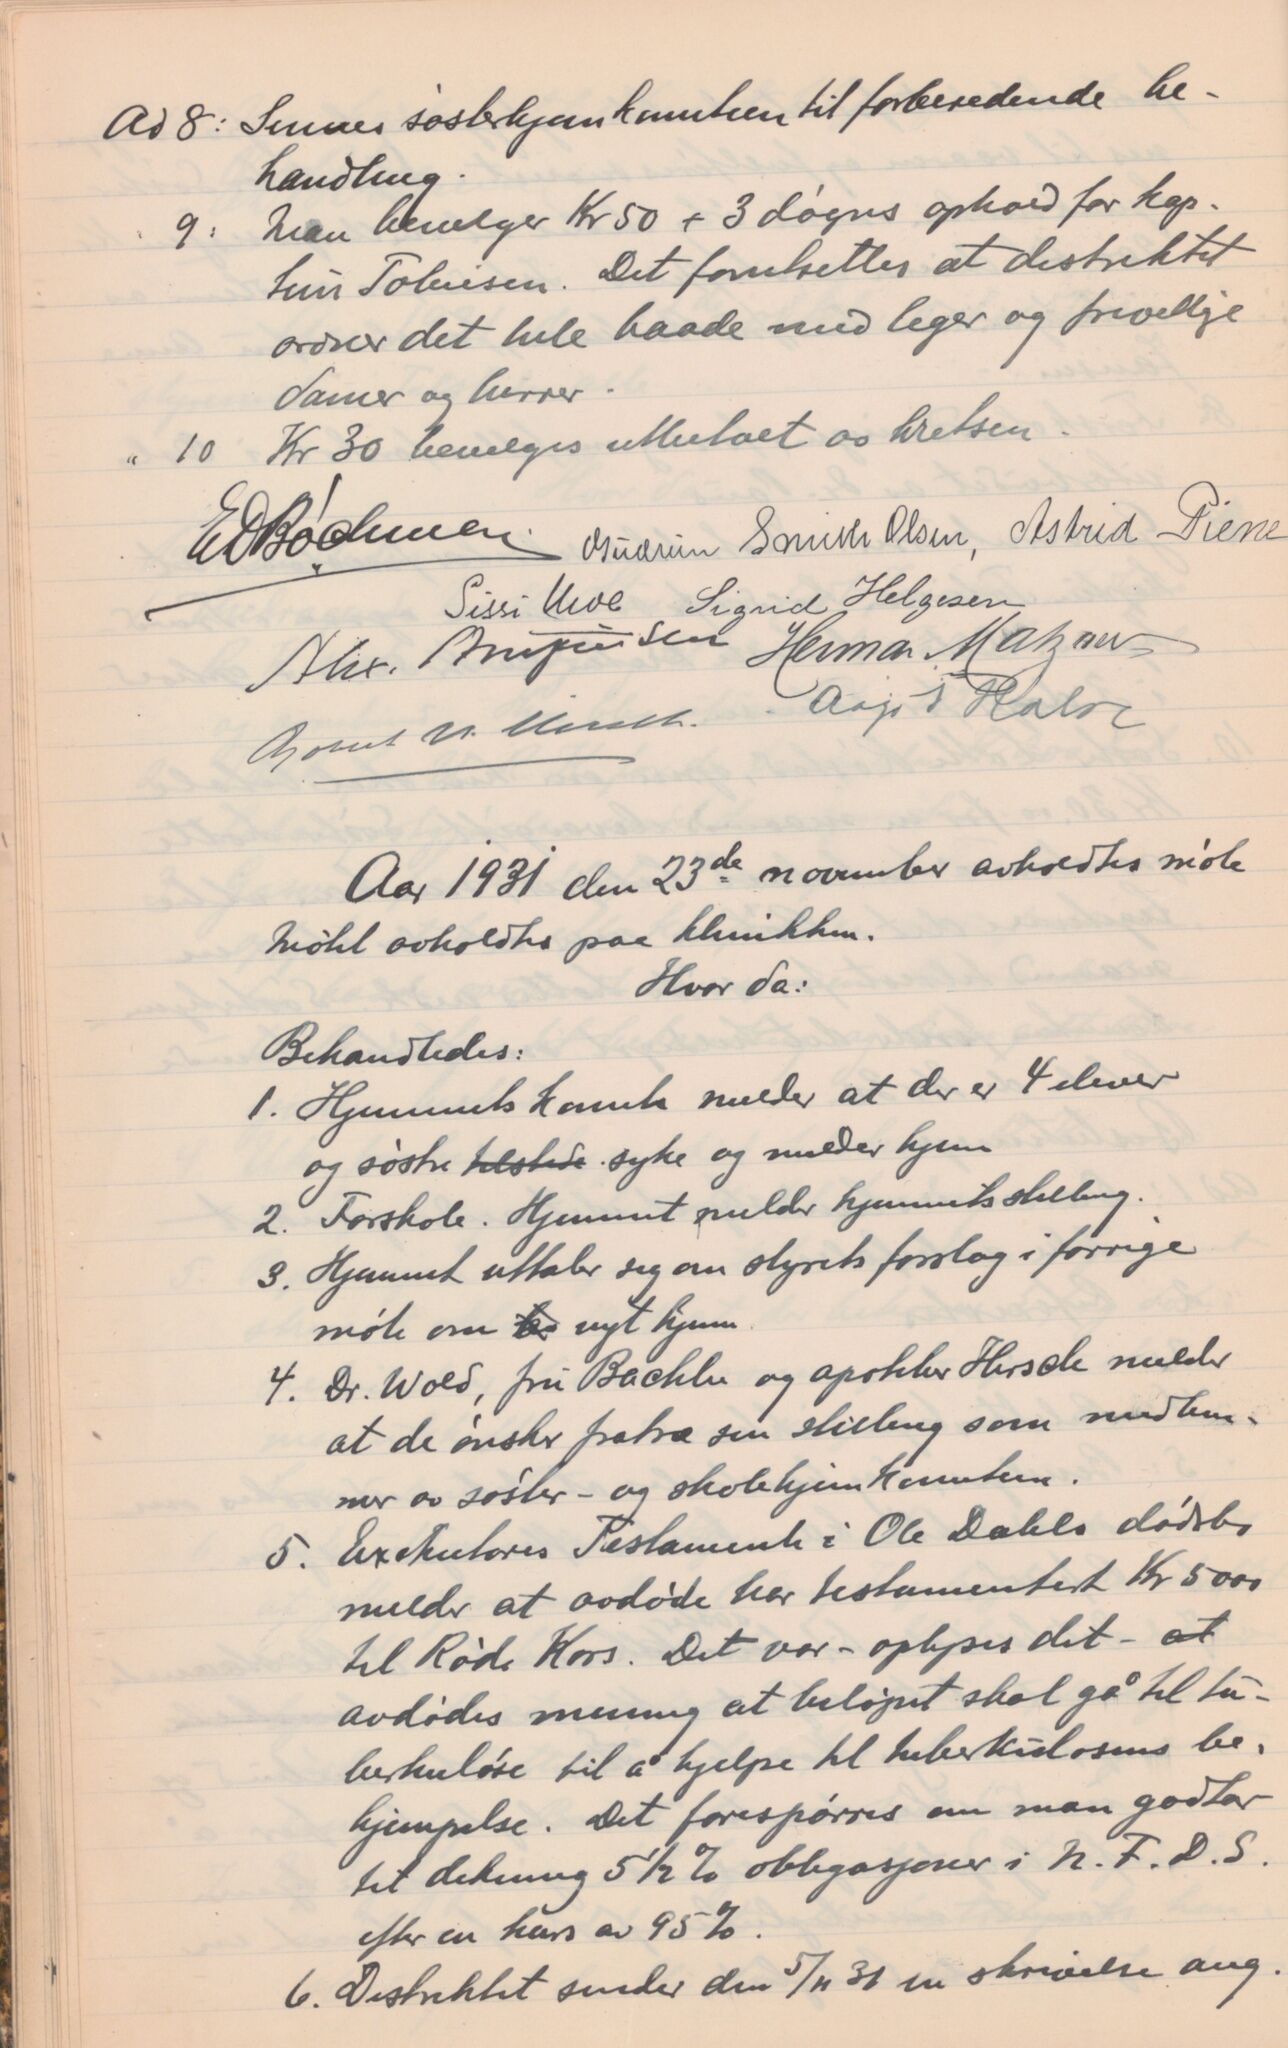 Ad 8: Sendes søsterhjemkomiteen til forberedende be-
handling.
" 9: Man bevilger Kr 50 + 3 døgns ophold for kap-
tein Tobiesen. Det forutsettes at distriktet
ordner det hele baade med leger og frivillige
damer og herrer.
" 10 Kr 30 bevilges utbetalt av kretsen.
ED Bødtmen Gudrun Smith Olsen, Astrid Piene
Sissi Sigrid Helgesen
Alex. Herman Matzow
Aagot
Aar 1931 den 23de november avholdtes møte
Møtet avholdtes paa klinikken.
Hvor da:
Behandledes:
1. Hjemmets komite melder at der er 4 elever
og søstre tilstede syke og melder hjem
2. Forskole. Hjemmet melder hjemmets stilling.
3. Hjemmet uttaler seg om styrets forslag i forrige
møte om nyt hjem
4. Dr. Wold, fru Bachke og apoteker Hirsch melder
at de ønsker fratræ sin stilling som medlem-
mer av søster- og skolehjemkomiteen.
5. Exekutores Testamenti i Ole Dahls dødsbo
melder at avdøde har testamentert Kr 5000
til Røde Kors. Det var - oplyses det - at
avdødes mening at beløpet skal gå til tu-
berkuløse til å hjelpe til tuberkulosens be-
kjempelse. Det forespørres om man godtar
til dekning 5 1/2 % obligasjoner i N. F. D. S.
efter en kurs av 95 %.
6. Distriktet sender den 5/11 31 en skrivelse ang.